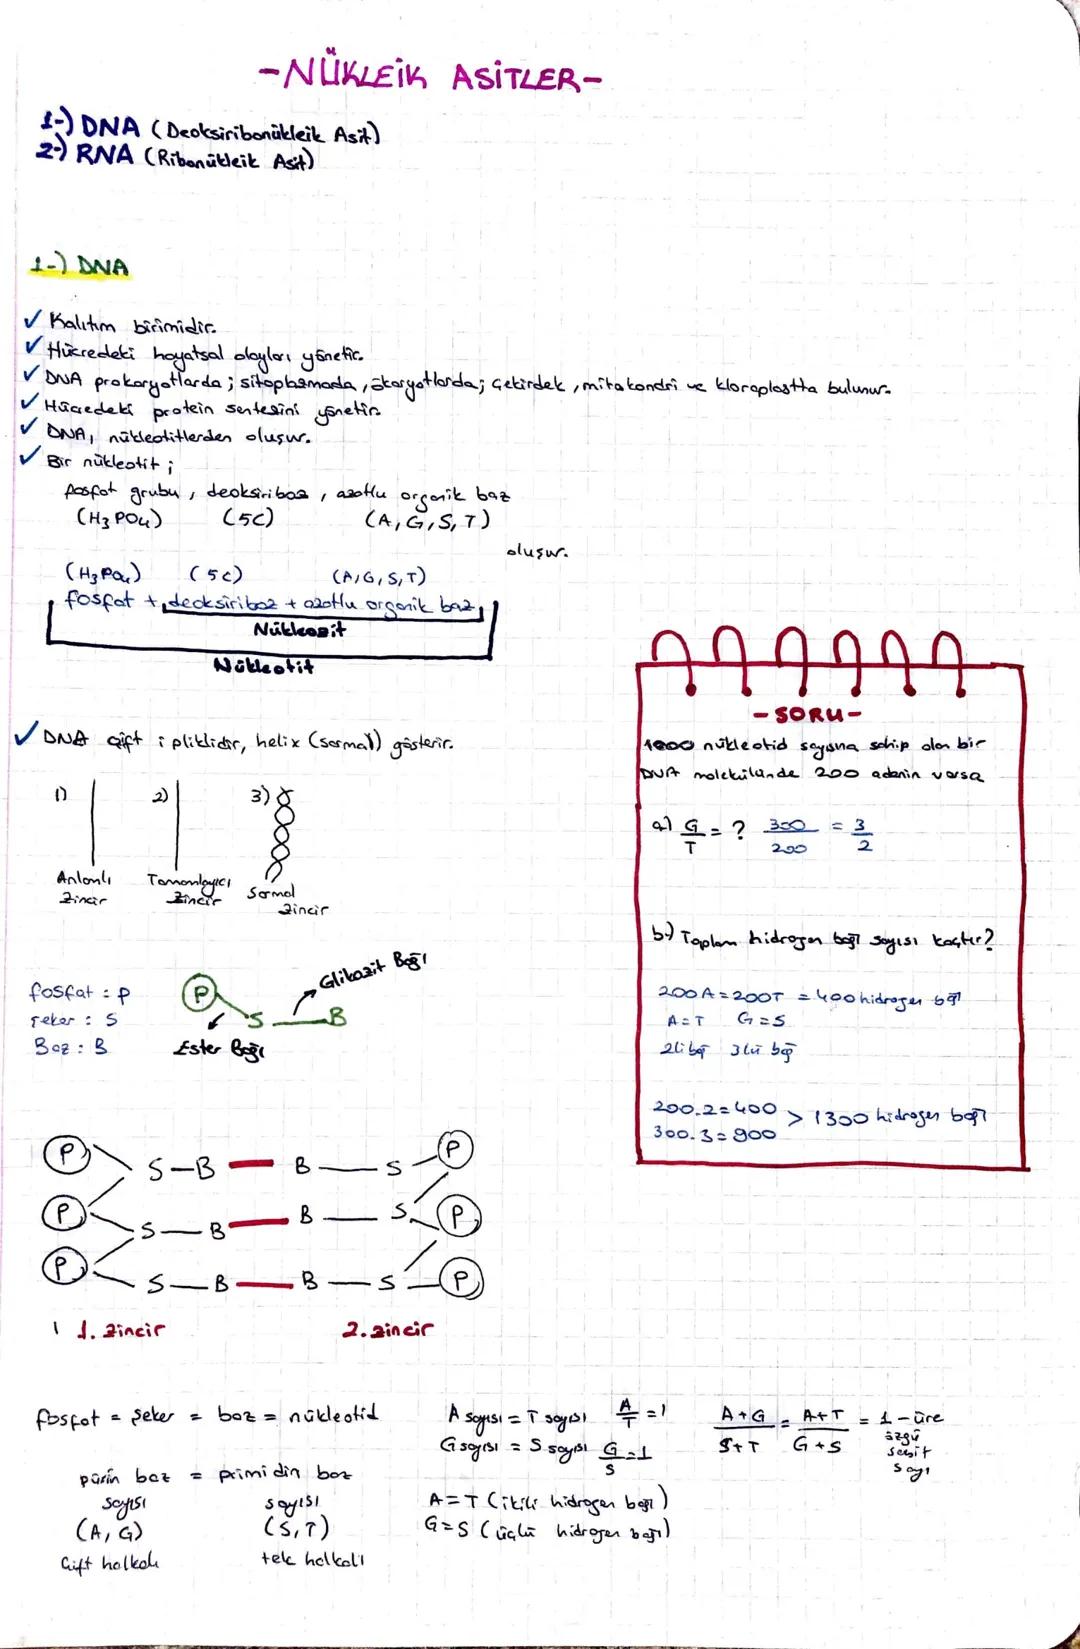 -NÜKLEİK ASİTLER-
1-) DNA (Deoksiribonükleik Asit)
2-) RNA (Ribonükleik Asit)
1-) DNA
✓ Kalıtım birimidir.
✓ Hücredeki hayatsal olayları yönetir.
✓ DNA prokaryotlarda; sitoplazmada, ökaryotlarda; Çekirdek, mitokondri ve kloroplastta bulunur.
✓ Hücredeki protein sentezini yönetir.
✓ DNA, nükleotitlerden oluşur.
✓ Bir nükleotit;
fosfat grubu, deoksiriboz, azotlu organik baz
(H3PO4) (5C) (A, G, S, T)
oluşur.
(H3PO4) (5C) (A, G, S, T)
fosfat + deoksiriboz + azotlu organik baz
Nükleozit
Nükleotit
✓ DNA çift ipliklidir, helix (sarmal) gösterir.
1) 2) 3)
Anlamlı zincir
Tamamlayıcı zincir
Sarmal zincir
fosfat : P
şeker : S
Baz : B
P S B
Glikozit Bağı
Ester Bağı
P S-B B S P
P S-B B S P
P S-B B S P
1. zincir 2. zincir
-SORU-
1000 nükleotid sayısına sahip olan bir
DNA molekülünde 200 adenin varsa
a) G/T = ? 300/200 = 3/2
b-) Toplam hidrojen bağı sayısı kaçtır?
200A = 200T = 400 hidrojen bağı
A=T G≡S
2li bağ 3lü bağ
200.2=400
300.3=900 > 1300 hidrojen bağı
fosfat = şeker = baz = nükleotid
pürin baz = primidin baz
sayısı sayısı
(A, G) (S, T)
Çift halkalı tek halkalı
A sayısı = T sayısı A/T = 1
G sayısı = S sayısı G/S = 1
A=T (ikili hidrojen bağı)
G≡S (üçlü hidrojen bağı)
A+G/S+T = A+T/G+S = 1-üre
özgü
sabit
sayı